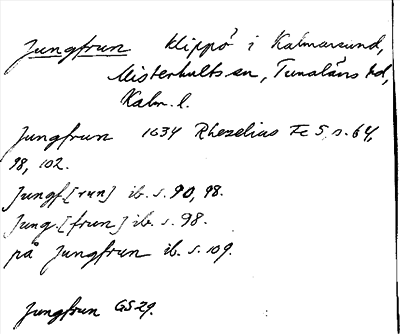 Jungfrun klippö i Kalmarsund,
Misterhults sn, Tunaläns hd,
Kalm. l.
Jungfrun 1634 Rhezelius Fc 5, s. 64,
98, 102.
Jungf.[run] ib. s. 90, 98.
Jung.[frun] ib. s. 98.
på Jungfrun ib. s. 109.
Jungfrun GS 29.